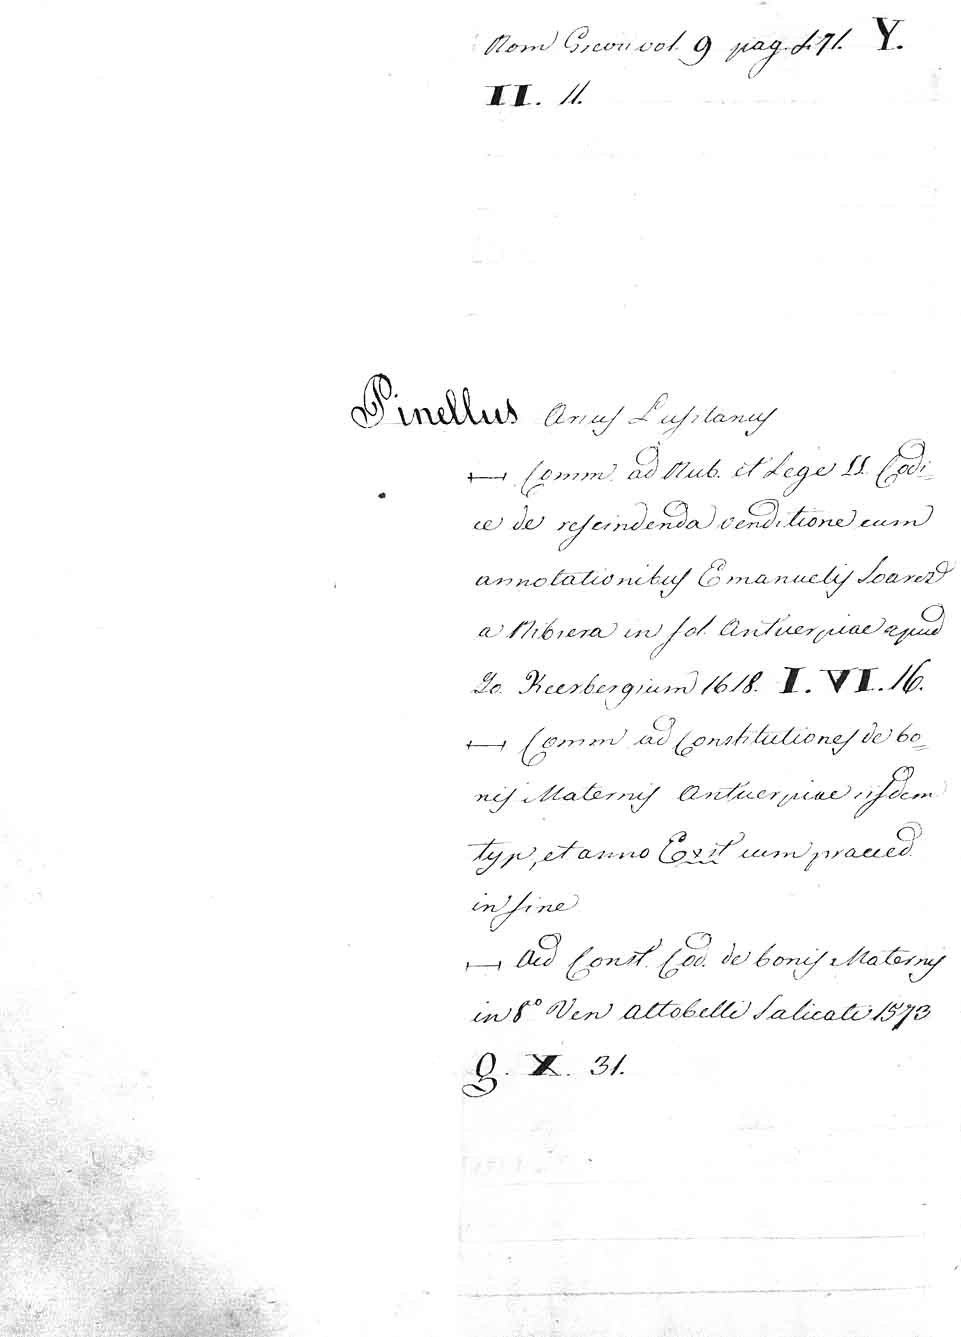 Rom Graev vol. 9 pag. 471. Y.
II. 11.
Pinellus Arius Lusitanus
⊢⊣ Comm. ad Rub. et Lege II. Codi=
ce de rescindenda venditione cum
annotationibus Emanuelis Soarez
a Ribiera in fol. Antuerpiae apud
Io. Keerbergium 1618. I. VI. 16.
⊢⊣ Comm ad Constitutiones de bo=
nis Maternis Antuerpiae iisdem
typ, et anno Exit cum praeced.
in fine
⊢⊣ Ad Const. Cod. de bonis Maternis
in 8° Ven Altobelli Salicati 1573
g. X. 31.